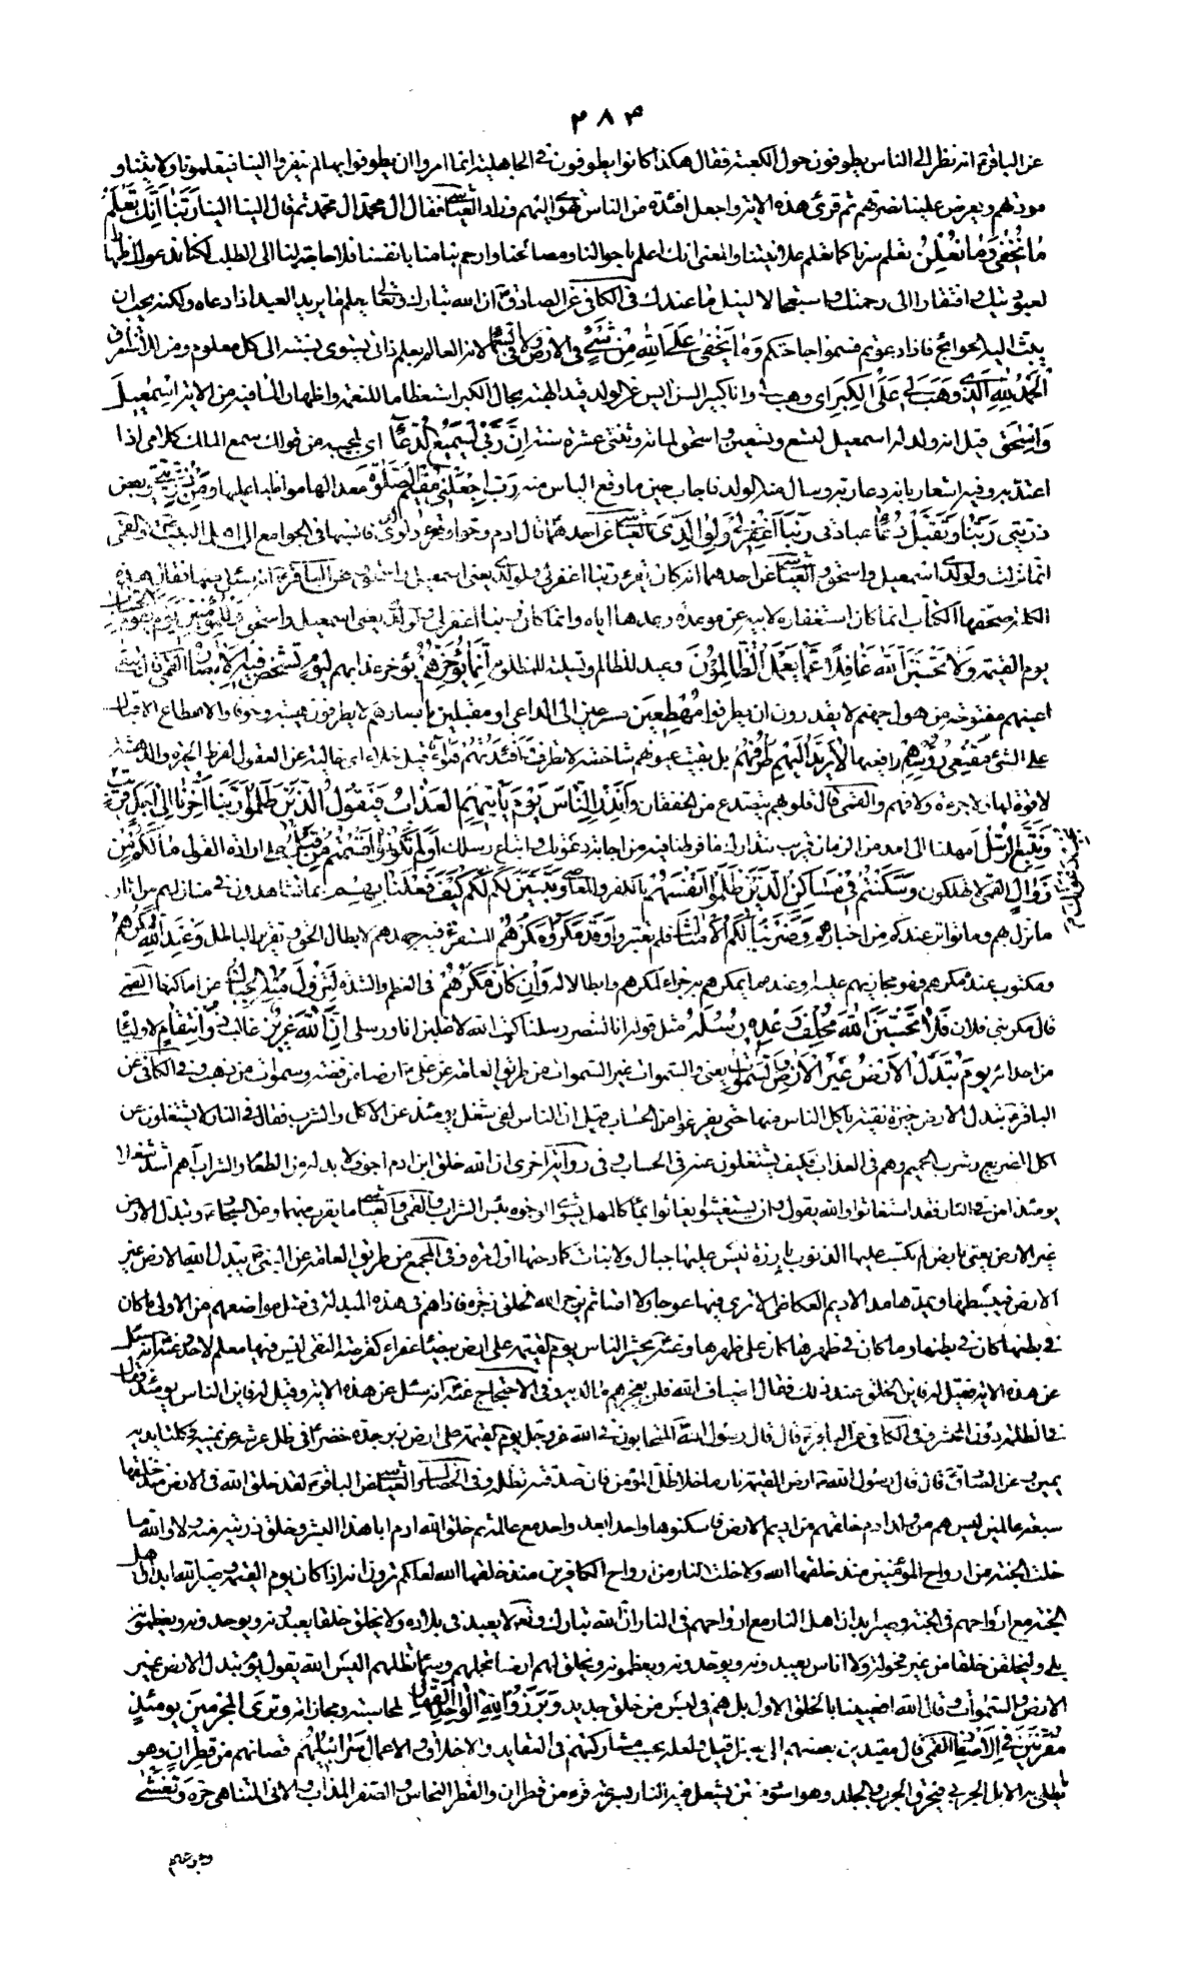 ٣٨٤
عن الباقر ع انه نظر الى الناس يطوفون حول الكعبة فقال هكذا كانوا يطوفون في الجاهلية انما امروا ان يطوفوا بها ثم ينفروا الينا فيعلمونا ولايتنا و
مودتهم ويعرض علينا نصرتهم ثم قرئ هذه الاية واجعل افئدة من الناس تهوى اليهم وزاد العياشي فقال ال محمد ال محمد ثم قال الينا الينا ربنا انك تعلم
ما نخفي وما نعلن تعلم سرنا كما تعلم علانيتنا والمعنى انك اعلم باحوالنا ومصالحنا وارحم بنا منا بانفسنا فلا حاجة لنا الى الطلب لكنا ندعوك اظهارا
لعبوديتك وافتقارا الى رحمتك واستعجالا لنيل ما عندك في الكافي عن الصادق ع ان الله تبارك وتعالى يعلم ما يريد العبد اذا دعاه ولكنه يحب ان
يبث اليه الحوائج فاذا دعوتم فسموا حاجتكم وما يخفى على الله من شيء في الارض ولا في السماء لانه العالم بعلم ذاتي يستوي نسبته الى كل معلوم ومن للاستغراق
الحمد لله الذي وهب لي على الكبر اي وهب لي وانا كبير السن ايس عن الولد قيد الهبة بحال الكبر استعظاما للنعمة واظهارا لما فيه من الاية اسمعيل
واسحق قيل انه ولد له اسمعيل لتسع وتسعين واسحق لمائة وثنتي عشرة سنة ان ربي لسميع الدعاء اي لمجيبه من قولك سمع الملك كلامي اذا
اعتد به وفيه اشعار بانه دعا ربه وسال منه الولد فاجاب حين ما وقع الياس منه رب اجعلني مقيم الصلوة معدا لها مواظبا عليها ومن ذريتي وبعض
ذريتي ربنا وتقبل دعاء عبادتي ربنا اغفر لي ولوالدي العياشي عن احدهما قال ادم وحوا
انما نزلت ولولدي اسمعيل واسحق والعياشي عن احدهما انه كان يقرء ربنا اغفر لي ولولدي يعني اسمعيل واسحق
الكتاب انما كان استغفاره لابيه عن موعدة وعدها اياه وانما كان ربنا اغفر لي ولولدي يعني اسمعيل واسحق وللمؤمنين يوم يقوم الحساب
يوم القيمة ولا تحسبن الله غافلا عما يعمل الظالمون وعيد للظالم وتسلية للمظلوم انما يؤخرهم يؤخر عذابهم ليوم تشخص فيه الابصار القمي قال تبقى
اعينهم مفتوحة من هول جهنم لا يقدرون ان يطرفوا مهطعين مسرعين الى الداعي او مقبلين بابصارهم لا يطرفون هيبة وخوفا والاهطاع الاقبال
على الشئ مقنعي رؤسهم رافعيها لا يرتد اليهم طرفهم بل بقيت عيونهم شاخصة لا تطرف وافئدتهم هواء قيل خلاء اي خالية عن العقول لفرط الحيرة والدهشة
لا قوة لها ولا جرءة ولا فهم والقمي قال قلوبهم تتصدع من الخفقان وانذر الناس يوم ياتيهم العذاب فيقول الذين ظلموا ربنا اخرنا الى اجل قريب
نجب دعوتك
ونتبع الرسل امهلنا الى امد من الزمان قريب نتدارك ما فرطنا فيه من اجابة دعوتك واتباع رسلك اولم تكونوا اقسمتم من قبل على ارادة القول ما لكم من
زوال القمي لا تهلكون وسكنتم في مساكن الذين ظلموا انفسهم بالكفر والمعاصي وتبين لكم كيف فعلنا بهم بما تشاهدون في منازلهم من اثار
ما نزل بهم وما تواتر عندكم من اخبارهم وضربنا لكم الامثال فلم تعتبروا وقد مكروا مكرهم المستفرغ فيه جهدهم لابطال الحق وتقرير الباطل وعند الله مكرهم
ومكتوب عنده مكرهم فهو مجازيهم عليه او عنده ما يمكرهم به جزاء لمكرهم وابطالا له وان كان مكرهم في العظم والشدة لتزول منه الجبال عن اماكنها القمي
قال مكر بني فلان فلا تحسبن الله مخلف وعده رسله مثل قوله انا لننصر رسلنا كتب الله لاغلبن انا ورسلي ان الله عزيز غالب ذو انتقام لاوليائه
من اعدائه يوم تبدل الارض غير الارض والسموات يعني والسموات غير السموات من طريق العامة عن علي ع تبدل ارضا من فضة وسموات من ذهب وفي الكافي عن
الباقر ع تبدل الارض خبزة نقية ياكل الناس منها حتى يفرغوا من الحساب قيل ان الناس لفي شغل يومئذ عن الاكل والشرب فقال هم في النار لا يشتغلون عن
اكل الضريع وشرب الحميم وهم في العذاب فكيف يشتغلون عنه في الحساب وفي رواية اخرى ان الله خلق ابن ادم اجوف لا بد له من الطعام والشراب اهم اشد شغلا
يومئذ ام من في النار فقد استغاثوا والله يقول وان يستغيثوا يغاثوا بماء كالمهل يشوي الوجوه بئس الشراب والقمي والعياشي ما يقرب منها وعن السجاد ع تبدل الارض
غير الارض يعني بارض لم تكتسب عليها الذنوب بارزة ليس عليها جبال ولا نبات كما دحيها اول مرة وفي المجمع من طريق العامة عن النبي ص يبدل الله الارض غير
الارض فيبسطها ويمدها مد الاديم العكاظي لا ترى فيها عوجا ولا امتا ثم يزجر الله الخلق زجرة فاذا هم في هذه المبدلة في مثل مواضعهم من الاولى ما كان
في بطنها كان في بطنها وما كان في ظهرها كان على ظهرها وعنه ص يحشر الناس يوم القيمة على ارض بيضاء عفراء كقرصة النقي ليس فيها معلم لاحد وعنه ص انه سئل
عن هذه الاية فقيل له فاين الخلق عند ذلك فقال اضياف الله فلن يعجزهم ما لديه وفي الاحتجاج عنه ص انه سئل عن هذه الاية وقيل له فاين الناس يومئذ فقال
في الظلمة دون المحشر وفي الكافي عن الباقر ع قال قال رسول الله ص المتحابون في الله عز وجل يوم القيمة على ارض زبرجدة خضراء في ظل عرشه عن يمينه وكلتا يديه
يمين وعن الصادق ع قال قال رسول الله ص ارض القيمة نار ما خلا ظل المؤمن فان صدقته تظله وفي الخصال والعياشي عن الباقر ع لقد خلق الله في الارض منذ خلقها
سبعة عالمين ليس هم من ولد ادم خلقهم من اديم الارض فاسكنوها واحدا بعد واحد مع عالمه ثم خلق الله ادم ابا هذا البشر وخلق ذريته منه ولا والله ما
خلت الجنة من ارواح المؤمنين منذ خلقها الله ولا خلت النار من ارواح الكافرين منذ خلقها الله لعلكم ترون انه اذا كان يوم القيمة وصير الله ابدان اهل
الجنة مع ارواحهم في الجنة وصير ابدان اهل النار مع ارواحهم في النار ان الله تبارك وتعالى لا يعبد في بلاده ولا يخلق خلقا يعبدونه ويوحدونه ويعظمونه
بلى وليخلقن خلقا من غير فحولة ولا اناث يعبدونه ويوحدونه ويعظمونه ويخلق لهم ارضا تحملهم وسماء تظلهم اليس الله يقول يوم تبدل الارض غير
الارض والسموات وقال الله افعيينا بالخلق الاول بل هم في لبس من خلق جديد وبرزوا لله الواحد القهار لمحاسبته ومجازاته وترى المجرمين يومئذ
مقرنين في الاصفاد القمي قال مقيدين بعضهم الى بعض قيل ولعله بحسب مشاركتهم في العقايد والاخلاق والاعمال سرابيلهم قمصانهم من قطران وهو
يطلى به الابل الجربى فيحرق الجرب والجلد وهو اسود نتن يشتعل فيه النار بسرعة وقرء من قطران والقطر النحاس والصفر المذاب والاني المتناهي حره وتغشى
وجوههم